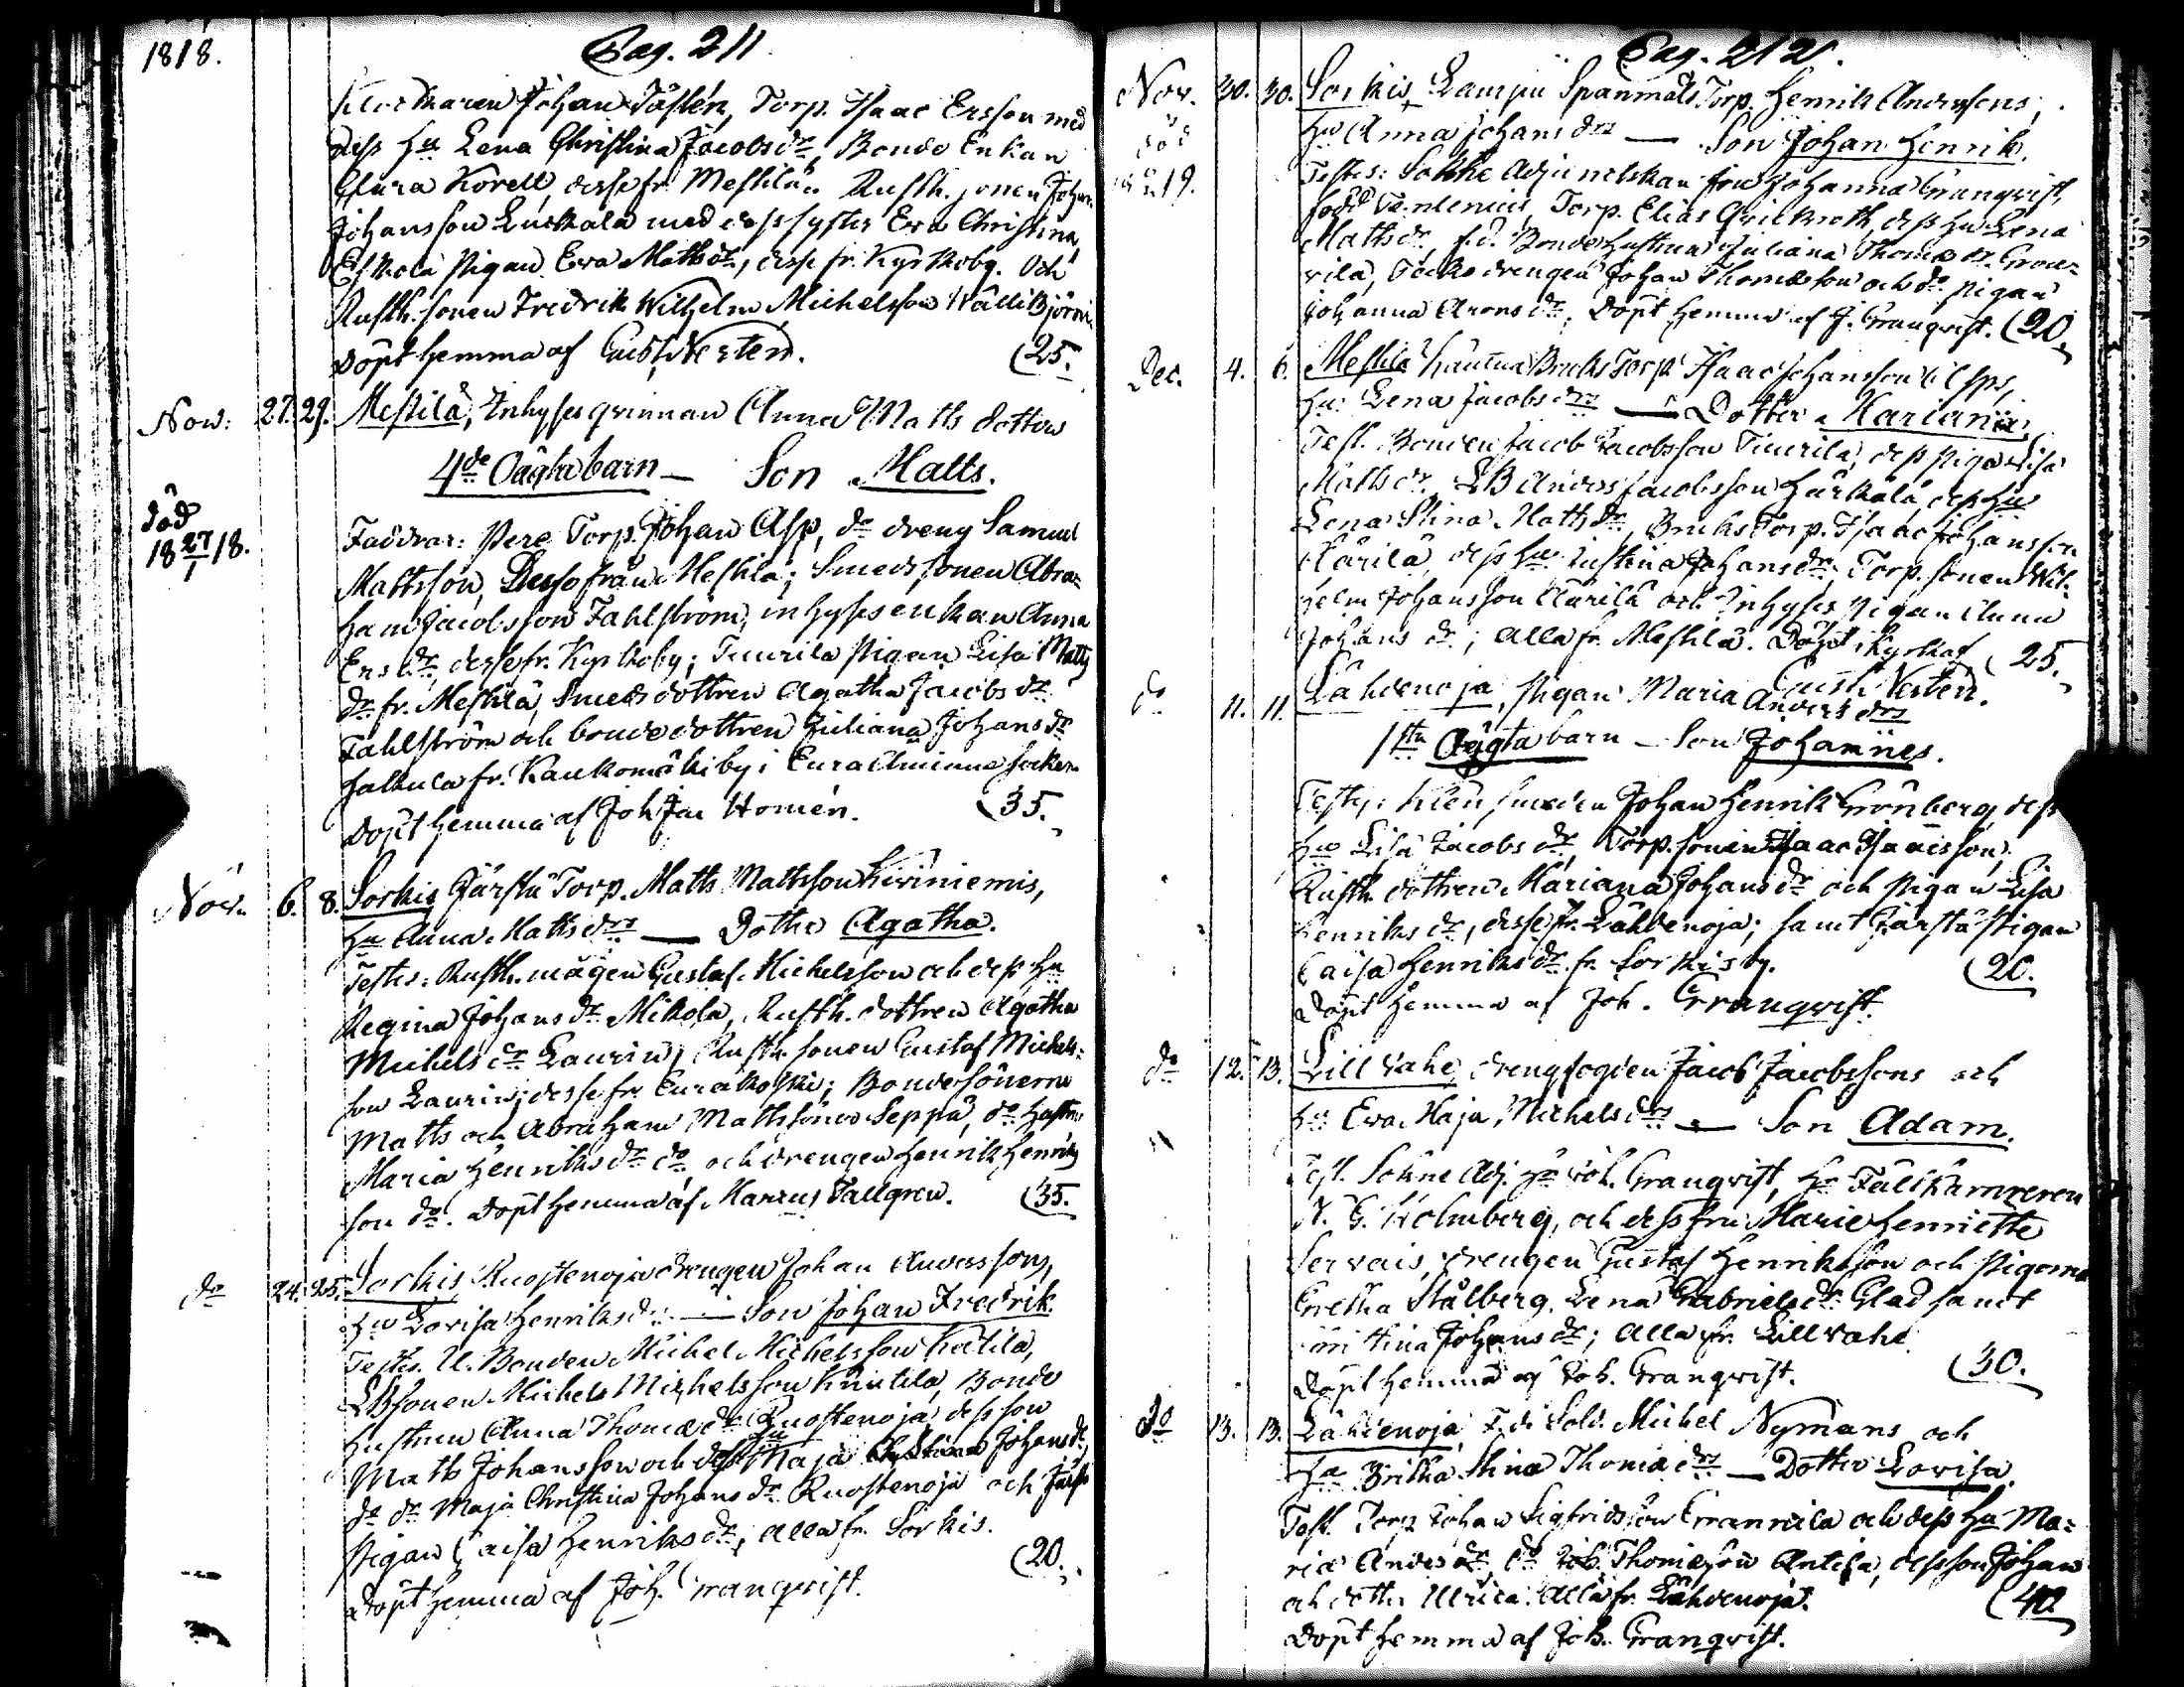 1818.
Pag. 211
Klockaren Johan Taflén, Torp. Isaac Ersson med
dess Hu Lena Christina Jacobs dr, Bonde Enkan
Clara Korell, desse fr. Mestilä. Rusth. sonen Johan
Johansson Luckala med dess syster Eva Christina,
Eskola Pigan Eva Matts dr, desse fr. Kyrkoby. Och
Rusth. sonen Fredrik Wilhelm Michelsson
döpt hemma af Gust. Nesterd. (25.
Nov. 27. 29. Mestilä, Inhyses qvinnan Anna Matts dotters
4de Oägta barn — Son Matts.
död
18 27/1 18.
Faddrar: Pere Torp. Johan Asp, do dreng Samuel
Mattsson, Desse från Mestilä; Smeds sonen Abra=
ham Jacobsson Fahlström, inhyses enkan Anna
Ers dr, desse fr. Kyrkoby; Tuurila Pigan Lisa Matts
dr fr. Mestilä, Smeds dottren Agatha Jacobs dr
Fahlström och bonde dottren Juliana Johans dr
fr. Kaukomäki by i Eura Socken
Döpt hemma af Joh Jac Homén. (35.
Nov. 6. 8. Sorkis Järstä Torp. Matts Mattsson Kiviniemis,
Hu Anna Matts drs — Dotter Agatha.
Testes: Rusth. mågen Gustaf Michelsson och dess Hu
Regina Johans dr Mikola, Rusth. dottren Agatha
Michels dr Laurin, Rusth. sonen Gustaf Michels=
son Laurin; desse fr. Eurakoski; Bondesönerne
Matts och Abraham Mattssöner Seppä, do Hustru
Maria Henriks dr do och drengen Henrik Henriks
son do. Döpt hemma af Marcus Tallgren. (35.
do 24. 25. Sorkis Ruostenoja drengen Johan Anderssons,
Hu Lovisa Henriks dr — Son Johan Fredrik
Testes. U. Bonden Michel Michelsson Katila,
LBsonen Michel Michelsson Knutila, Bonde
Hustrun Anna Thomæ dr Ruostenoja, dess son
Matts Johansson och dess Hu Maja Johans dr
do dr Maja Christina Johans dr Ruostenoja och Järstä
Pigan Caisa Henriks dr, alla fr. Sorkis.
(20.
Döpt hemma af Joh. Granqvist.
Pag. 212.
Nov. 30. 30. Sorkis, Laurju Spanmåls Torp. Henrik Anderssons,
Hu Anna Johans drs — Son Johan Henrik.
död
19.
Testes: Sokne Adjunctskan fru Johanna Granqvist
född Tenlenius, Torp. Elias Qvickroth, dess Hu Lena
Matts dr, f.d. Bonde Hustrun Juliana Thomæ dr
Johan Thomasson och do Pigan
Johanna Arons dr, Döpt hemma af J. Granqvist. (20.
Dec. 4. 6. Mestilä Kauttua Bruks Torp Isaac Johansson Asps,
Hu Lena Jacobs drs — Dotter Marianna.
Test. Bonden Jacob Jacobsson Tuurila, dess Piga Lisa
Matts dr. LB Anders Jacobsson Härkälä, dess Hu
Lena Stina Matts dr, Bruks Torp. Isaac Johansson
dess Hu Justina Johans dr, Torp. sonen Wil=
helm Johansson och Inhyses Pigan Anna
Johans dr; alla fr. Mestilä. Döpt i Kyrkan af (25.
Gust. Nesterd.
do 11. 11. Lähdenoja, Pigan Maria Anders drs
1sta Oägta barn — Son Johannes.
Testes: Klensmeden Johan Henrik Grönberg, dess
Hu Lisa Jacobs dr, Torp. sonen Isaac Isaacsson,
Rusth. dottren Mariana Johans dr och Pigan Lisa
Henriks dr, desse fr. Lähdenoja; samt Järstä Pigan
Caisa Henriks dr fr. Sorkis by. (20.
Döpt hemma af Joh. Granqvist.
do 12. 13. Lill Vahe, drengfogden Jacob Jacobssons och
Hu Eva Maja Michels drs — Son Adam.
Test. Sokne Adj. Hr Joh. Granqvist, Hr Fältkamreren
N. G. Holmberg, och dess fru Marie Henriette
Servais, drengen Gustaf Henriksson och Pigorna
Gretha Stålberg, Lena Gabriels dr Glad samt
Johans dr; Alla fr. Lillvahe.
(30.
Döpt hemma af Joh. Granqvist.
do 13. 13. Lähdenoja, F.d. Sold. Michel Nymans och
Hu Britha Stina Thomæ drs — Dotter Lovisa.
Test. Torp Johan Sigfridsson och dess Hu Ma=
ria Anders dr, do Job. Thomæson Antila, dess son Johan
och dotter Ulrica. Alla fr. Lähdenoja. (40
Döpt hemma af Joh. Granqvist.